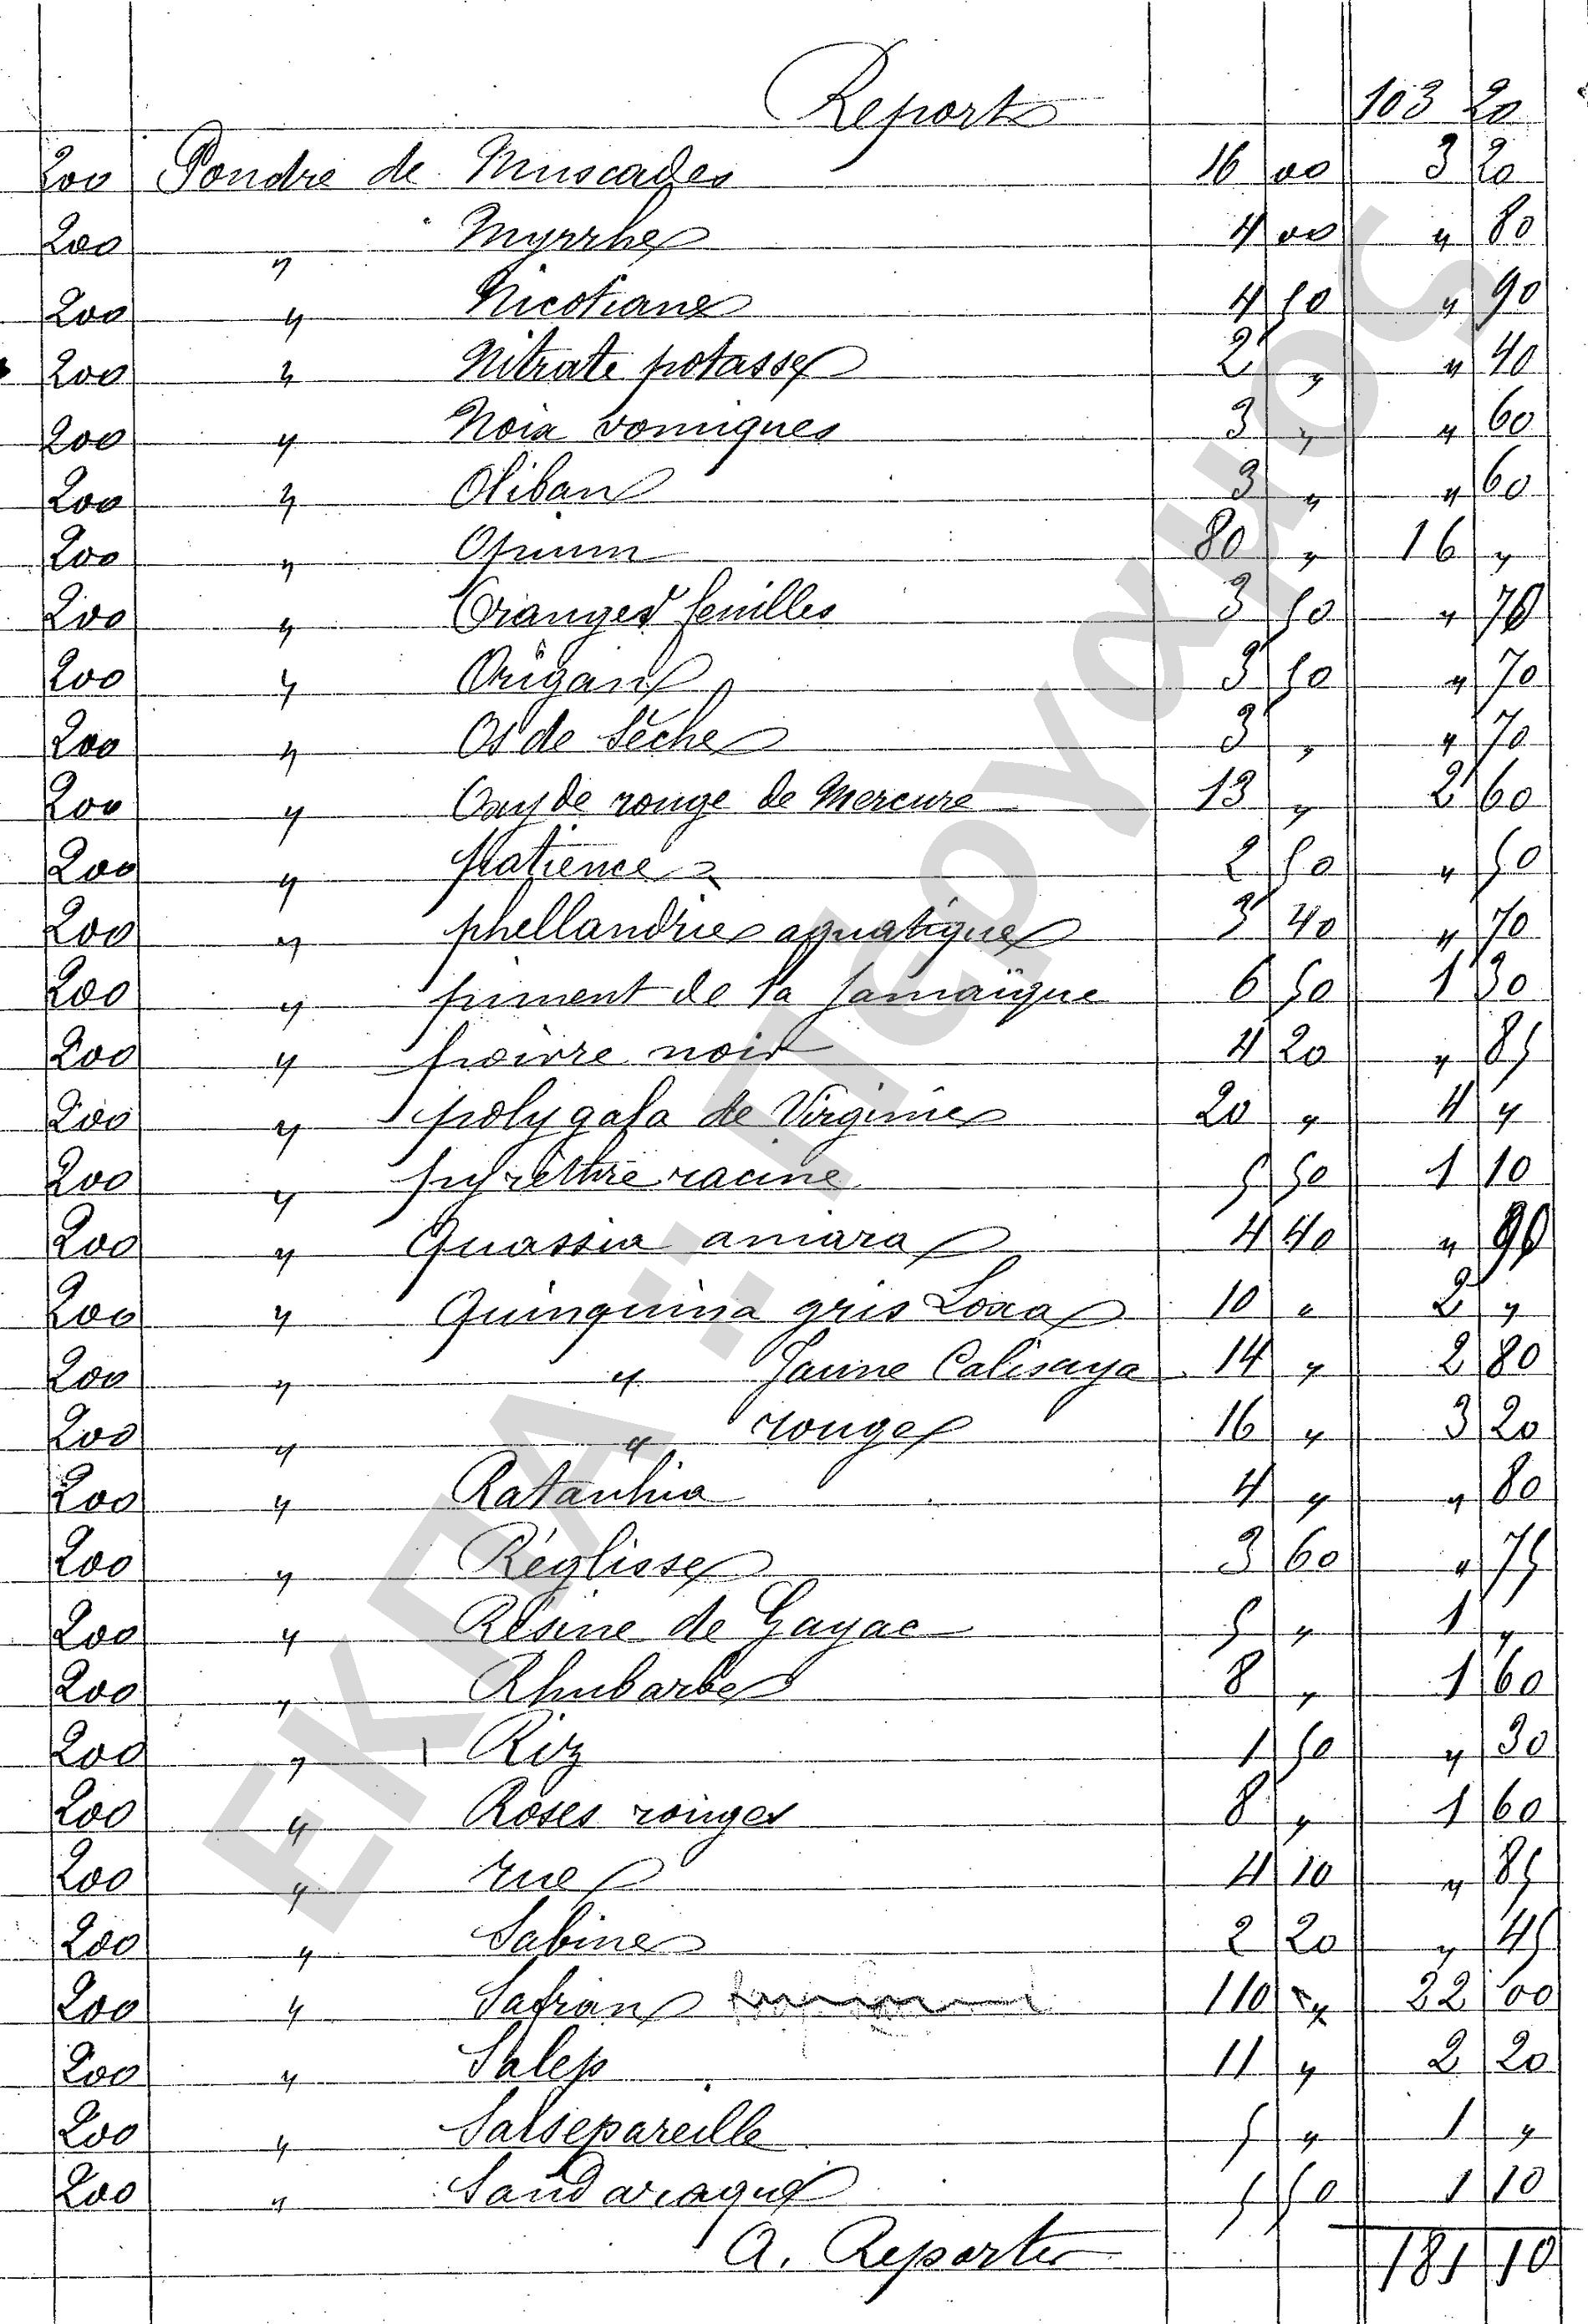 Report 103 20
200 Poudre de Muscades 16 00 3 20
200 " Myrrhe 4 00 " 80
200 " Nicotiane 4 50 " 90
200 " Nitrate potasse 2 " " 40
200 " Noix vomiques 3 " " 60
200 " Oliban 3 " " 60
200 " Opium 80 " 16 "
200 " Oranger feuilles 3 50 " 70
200 " Origan 3 50 " 70
200 " Os de Sèche 3 " " 70
200 " Oxyde rouge de Mercure 13 " 2 60
200 " patience 2 50 " 50
200 " phellandrie aquatique 3 40 " 70
200 " piment de la Jamaïque 6 50 1 30
200 " poivre noir 4 20 " 85
200 " polygala de Virginie 20 " 4 "
200 " pyrèthre racine 5 50 1 10
200 " Quassia amara 4 40 " 90
200 " Quinquina gris Loxa 10 " 2 "
200 " " Jaune Calisaya 14 " 2 80
200 " " rouge 16 " 3 20
200 " Ratanhia 4 " " 80
200 " Réglisse 3 60 " 75
200 " Résine de Gayac 5 " 1 "
200 " Rhubarbe 8 " 1 60
200 " Riz 1 50 " 30
200 " Roses rouges 8 " 1 60
200 " rue 4 10 " 85
200 " Sabine 2 20 " 45
200 " Safran 110 " 22 00
200 " Salep 11 " 2 20
200 " Salsepareille 5 " 1 "
200 " Sandaraque 5 50 1 10
A. Reporter 181 10
ΕΚΠΑ :: Πέργαμος